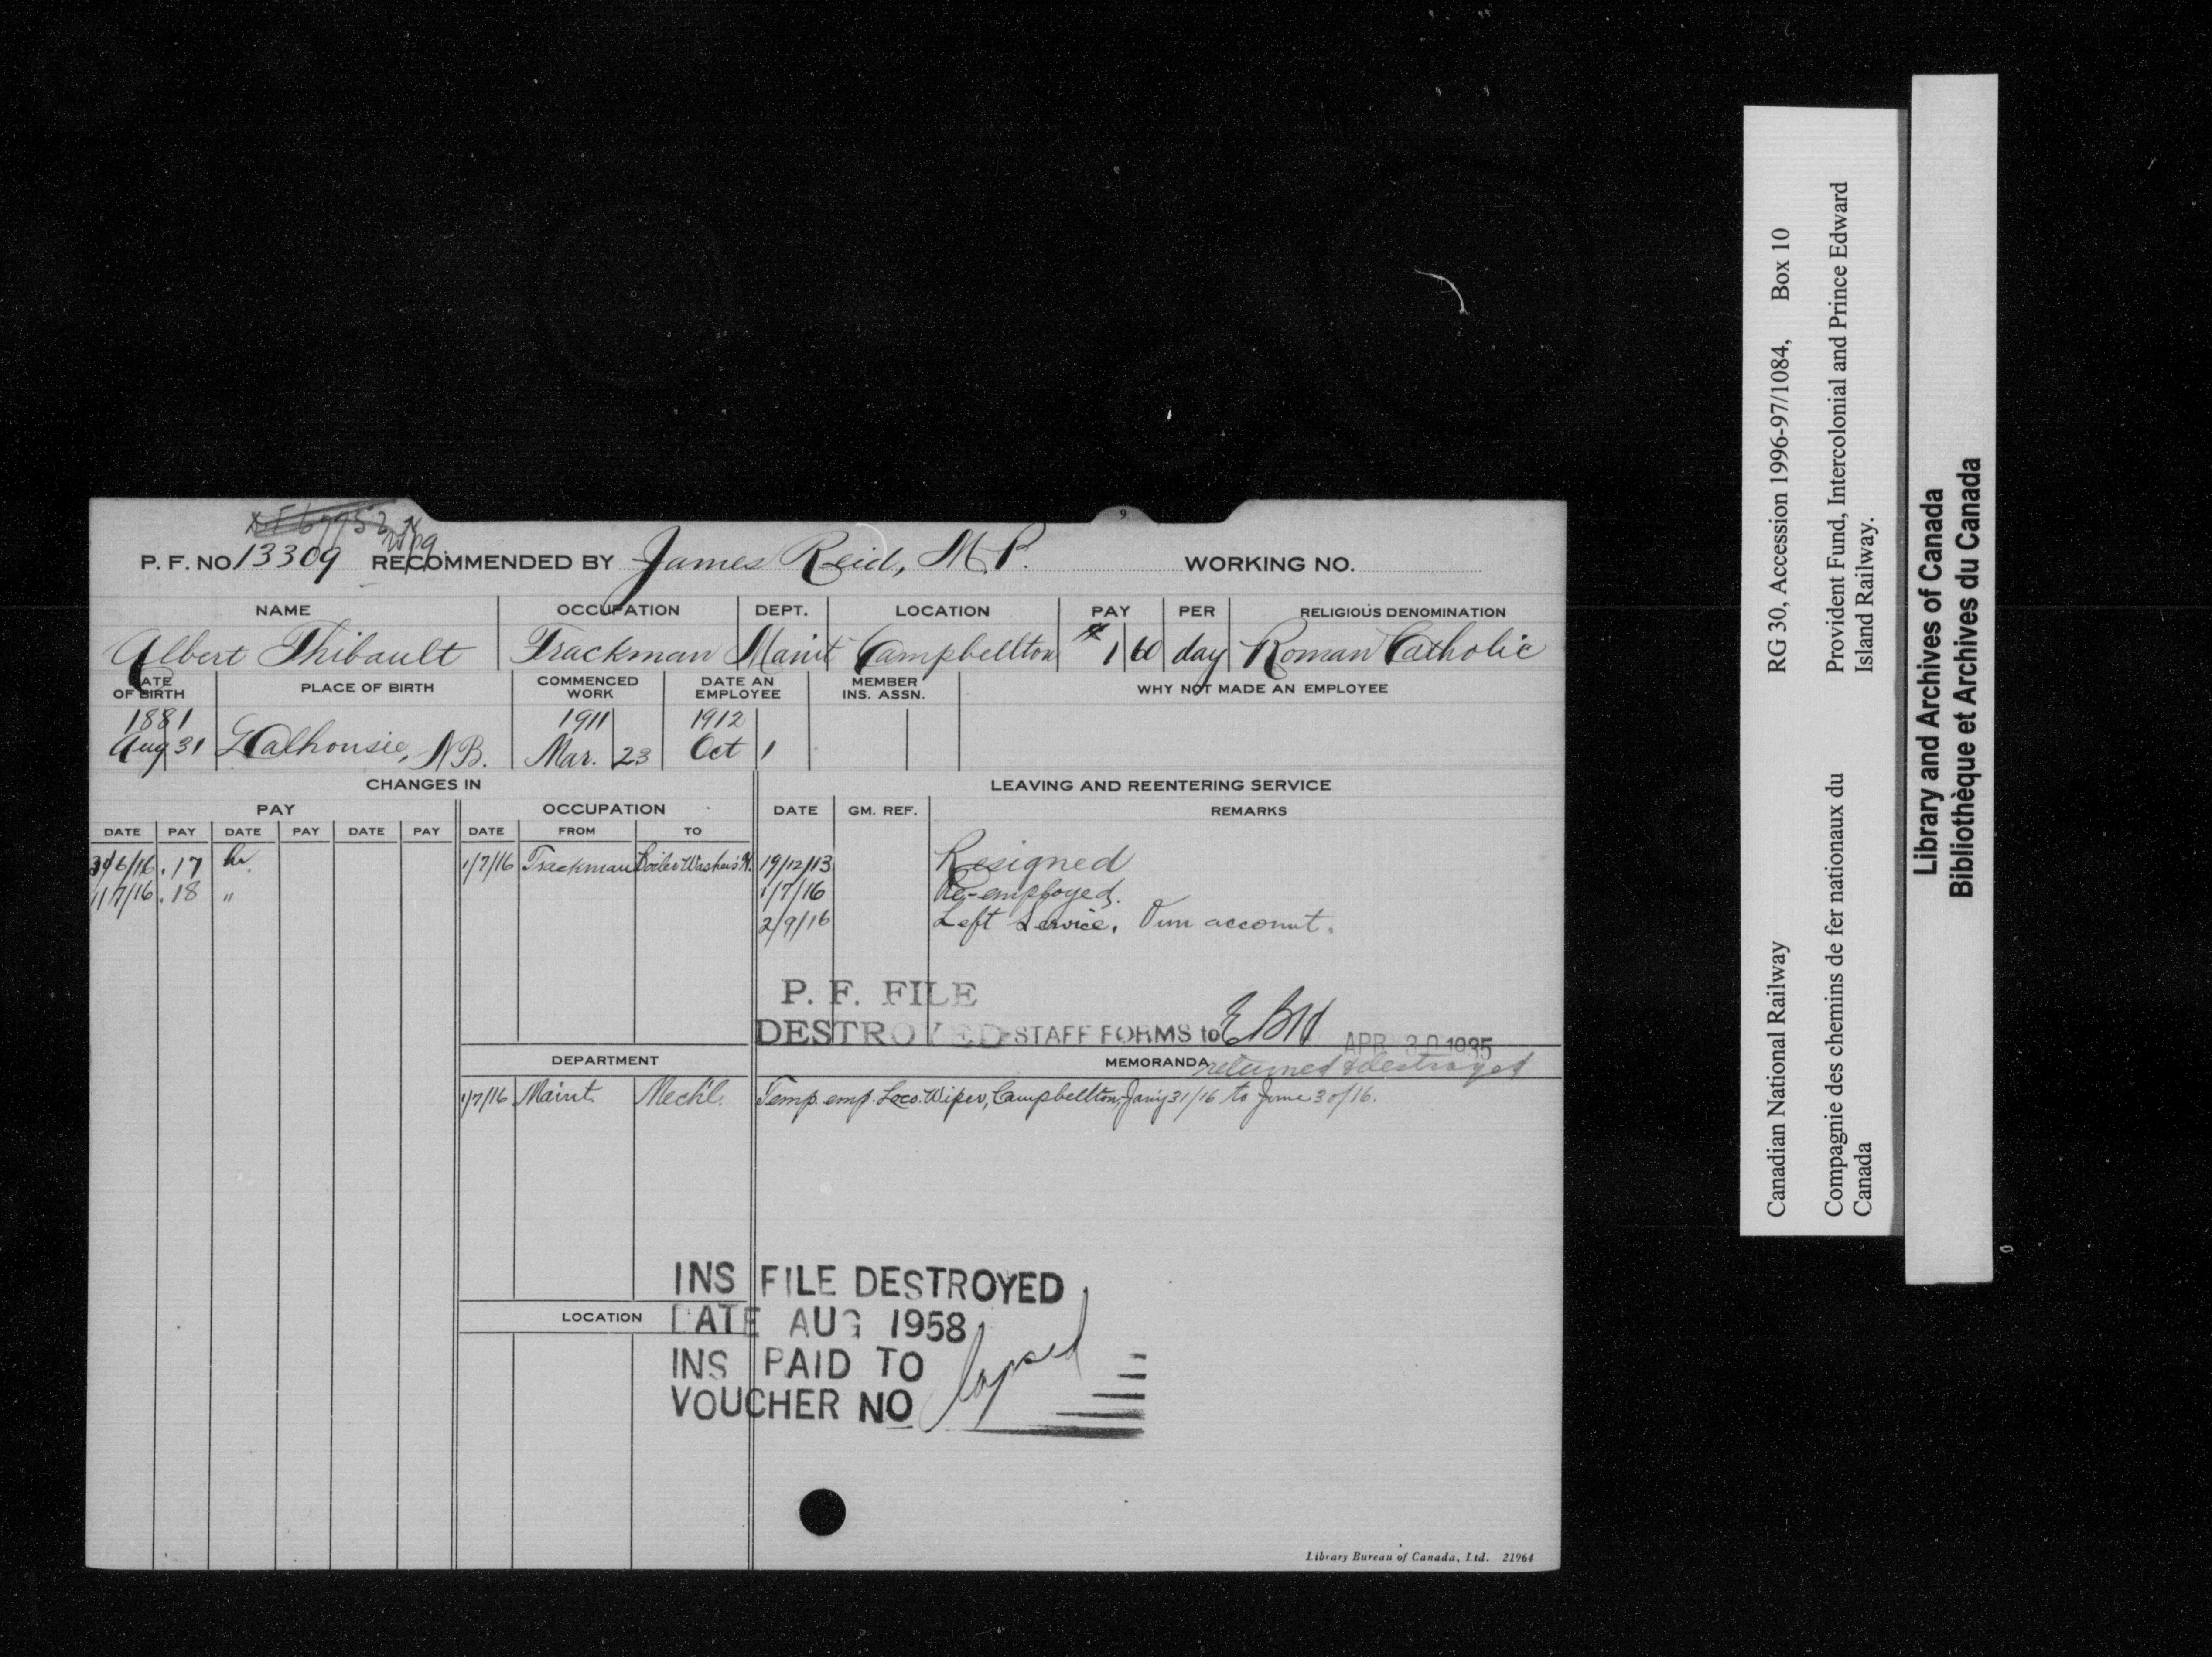 9
P. F. NO 13309 RECOMMENDED BY James Reid, M.P. WORKING NO.
NAME OCCUPATION DEPT. LOCATION PAY PER RELIGIOUS DENOMINATION
Albert Thibault Trackman Maint Campbellton $1 60 day Roman Catholic
DATE OF BIRTH PLACE OF BIRTH COMMENCED WORK DATE AN EMPLOYEE MEMBER INS. ASSN. WHY NOT MADE AN EMPLOYEE
1881 1911 1912
Aug 31 Dalhousie, N.B. Mar. 23 Oct 1
CHANGES IN LEAVING AND REENTERING SERVICE
PAY OCCUPATION DATE GM. REF. REMARKS
DATE PAY DATE PAY DATE PAY DATE FROM TO
30/6/16 .17 hr 1/7/16 Trackman Boiler Washer's H. 19/12/13 Resigned
1/7/16 .18 " 1/7/16 Re-employed.
2/9/16 Left Service. Own account.
P. F. FILE
DESTROYED STAFF FORMS to EBH APR 30 1935
DEPARTMENT MEMORANDA returned & destroyed
1/7/16 Maint. Mech'l. Temp. emp. Loco. Wiper, Campbellton, Jan'y 31/16 to June 30/16.
INS FILE DESTROYED
LOCATION DATE AUG 1958
INS PAID TO lapsed
VOUCHER NO
Library Bureau of Canada, Ltd. 21964
Canadian National Railway RG 30, Accession 1996-97/1084, Box 10
Compagnie des chemins de fer nationaux du Provident Fund, Intercolonial and Prince Edward
Canada Island Railway.
Library and Archives of Canada
Bibliothèque et Archives du Canada